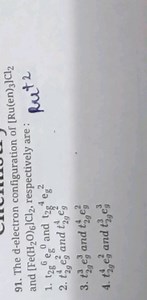 91. The d-electron configuration of [Ru(en)₃]Cl₂
and [Fe(H₂O)₆]Cl₂, respectively are :
Ru+2
1. t₂g⁶ eg⁰ and t₂g⁴ eg²
2. t₂g⁴ eg² and t₂g⁶ eg⁰
3. t₂g³ eg³ and t₂g⁴ eg²
4. t₂g⁴ eg² and t₂g³ eg³